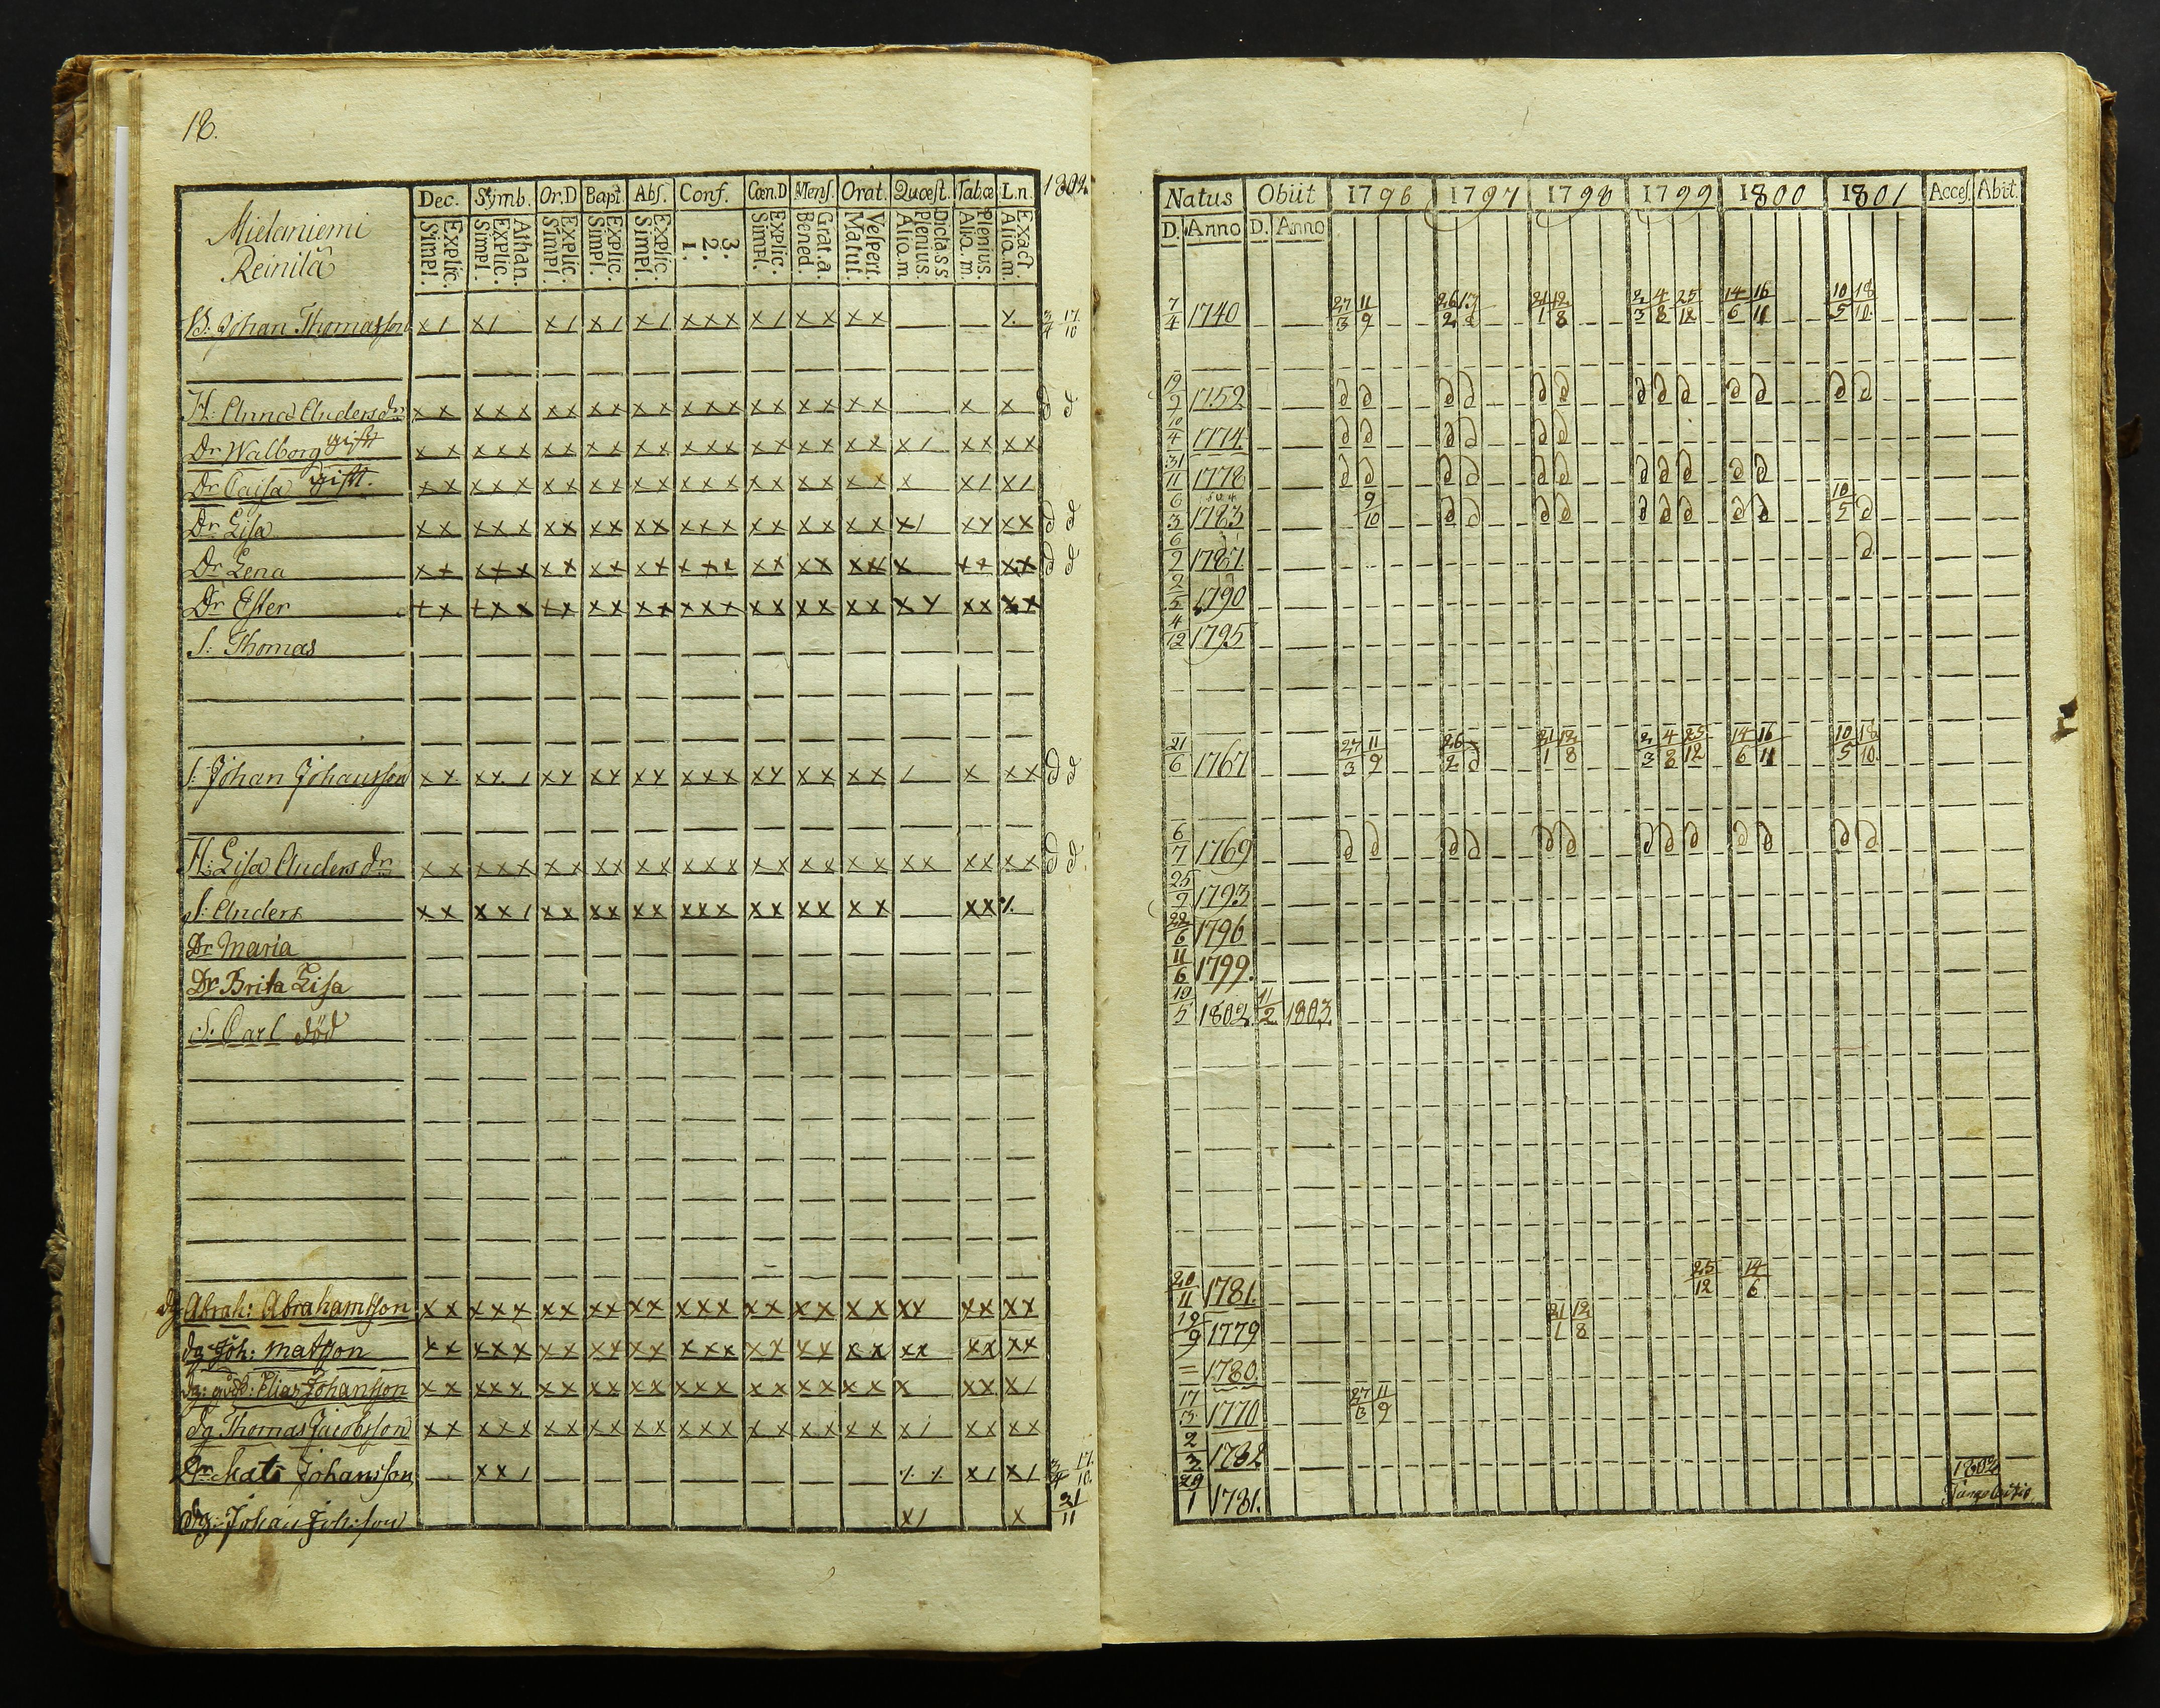 18.
Dec. Symb. Or.D Bapt. Abs. Conf. Cœn.D Mens. Orat. Quæst. Tabœ L.n. 1802.
Explic. Simpl. Athan. Explic. Simpl. Explic. Simpl. Explic. Simpl. Explic. Simpl. 3. 2. 1. Explic. Simpl. Grat.a. Bened. Vespert. Matut. Dicta.s.s Plenius. Alio.m. Plenius. Alio.m. Exact. Alio.m.
Mielaniemi
Reinilä
B: Johan Thomasson x/ x/ x/ x/ x/ xxx x/ xx xx 3/4 17/10
H: Anna Anders dr xx xxx xx xx xx xxx xx xx xx x x
Dr Walborg gift xx xxx xx xx xx xxx xx xx xx x/ xx xx
Dr Caisa gift. xx xxx xx xx xx xxx xx xx xx x x/ x/
Dr Lisa xx xxx xx xx xx xxx xx xx xx x/ xx xx
Dr Lena xx xxx xx xx xx xxx xx xx xx x xx xx
Dr Ester xx xxx xx xx xx xxx xx xx xx xx xx xx
S: Thomas
S: Johan Johansson xx xx/ xx xx xx xxx xx xx xx / x xx
H: Lisa Anders dr xx xxx xx xx xx xxx xx xx xx xx xx xx
S: Anders xx xx/ xx xx xx xxx xx xx xx xx
Dr Maria
Dr Brita Lisa
S: Carl död
dg Abrah: Abrahamsson xx xxx xx xx xx xxx xx xx xx xx xx xx
dg Joh: Matsson xx xxx xx xx xx xxx xx xx xx xx xx xx
Elias Johansson xx xxx xx xx xx xxx xx xx xx x xx x/
dg Thomas Jacobsson xx xxx xx xx xx xxx xx xx xx x/ xx xx
Dr Mats Johansson xx/ x/ x/ 3/4 17/10
drg: Johan Joh:son x/ x 21/11
Natus Obiit 1796 1797 1798 1799 1800 1801 Acces. Abit.
D. Anno D. Anno
7/4 1740 27/3 11/9 21/1 12/8 2/3 4/8 25/12 14/6 16/11 10/5 18/10
19/9 1752 d d d d d d d d d d d d d
10/4 1774 d d d d d d
31/11 1778 d d d d d d d d d d d
6/3 1783 9/10 d d d d d d d d d 10/5 d
6/9 1787 d
2/5 1790
4/12 1795
21/6 1767 27/3 11/9 26/2 d 21/1 12/8 2/3 4/8 25/12 14/6 16/11 10/5 18/10
6/7 1769 d d d d d d d d d d d d d
25/9 1793
22/6 1796
11/6 1799.
10/5 1802 11/2 1803
20/11 1781. 25/12 14/6
19/9 1779 21/1 12/8
= 1780.
17/3 1770 27/3 11/9
2/3 1782
29/1 1781. 1802